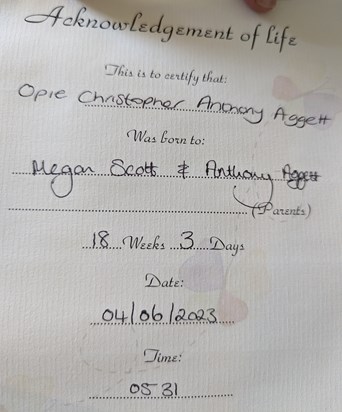 Acknowledgement of life
This is to certify that:
Opie Christopher Anthony Aggett
Was born to:
Megan Scott & Anthony Aggett
(Parents)
18 Weeks 3 Days
Date:
04/06/2023
Time:
0531